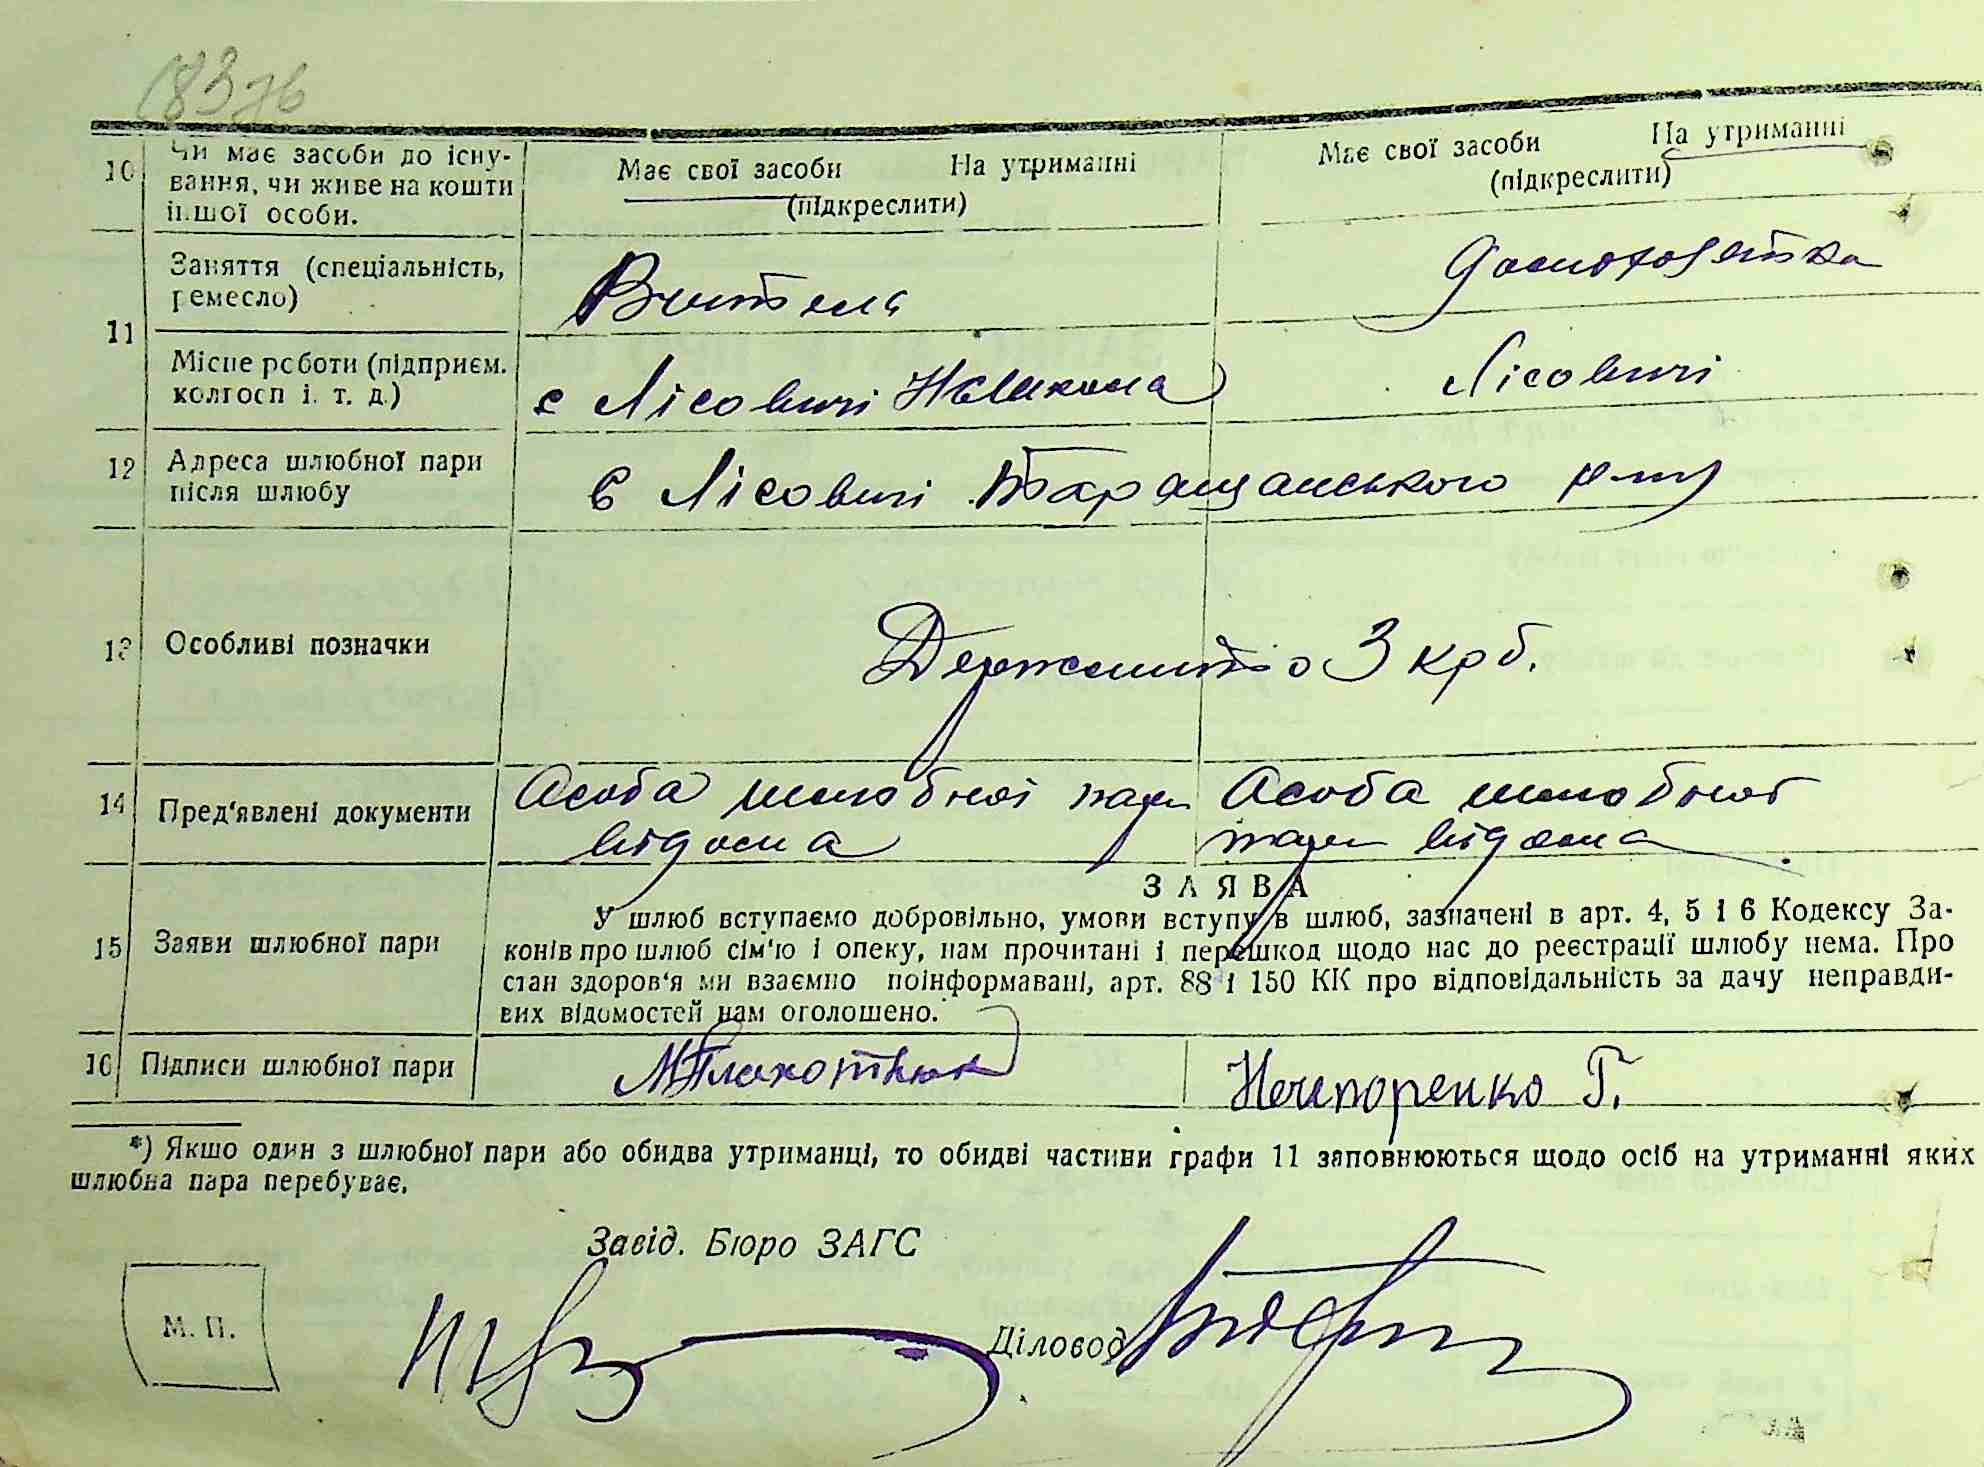 183зв
10 Чи має засоби до існу-
вання, чи живе на кошти
іншої особи.
Має свої засоби На утриманні
(підкреслити)
Має свої засоби На утриманні
(підкреслити)
11 Заняття (спеціальність,
ремесло)
Вчитель
домохозяйка
Місце роботи (підприєм.
колгосп і. т. д.)
с Лісовичі НСШкола
Лісовичі
12 Адреса шлюбної пари
після шлюбу
с Лісовичі Таращанського р-ну
13 Особливі позначки
Держмито 3 крб.
14 Пред'явлені документи
Особа шлюбної пари
відома
Особа шлюбної
пари відома.
ЗАЯВА
15 Заяви шлюбної пари
У шлюб вступаємо добровільно, умови вступу в шлюб, зазначені в арт. 4, 5 і 6 Кодексу За-
конів про шлюб сім'ю і опеку, нам прочитані і перешкод щодо нас до реєстрації шлюбу нема. Про
стан здоров'я ми взаємно поінформавані, арт. 88 і 150 КК про відповідальність за дачу неправди-
вих відомостей нам оголошено.
16 Підписи шлюбної пари
МПлахотнюк
Нечипоренко Г.
*) Якшо один з шлюбної пари або обидва утриманці, то обидві частини графи 11 заповнюються щодо осіб на утриманні яких
шлюбна пара перебуває.
Завід. Бюро ЗАГС
М. П.
Діловод